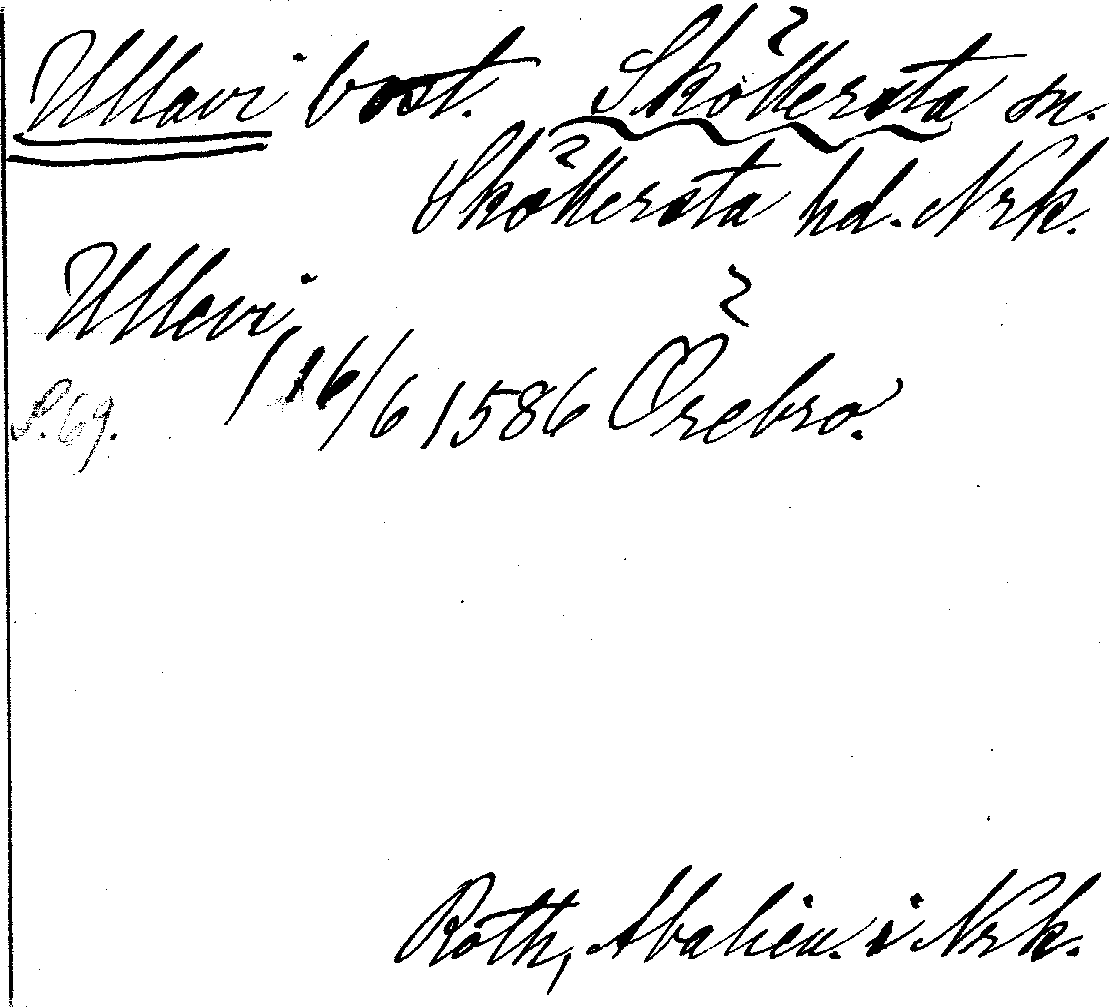 Ullavi bost. Sköllersta sn.
Sköllersta hd. Nrk.
Ullevi
S. 69. 16/6 1586 Örebro.
Roth, Abalien. i Nrk.